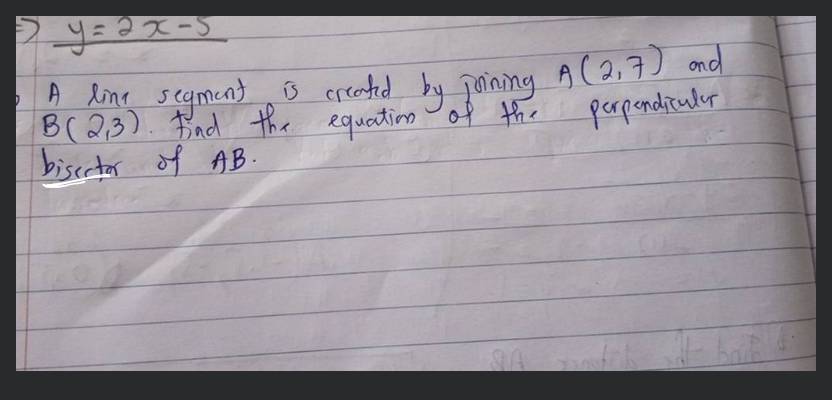 => y = 2x - 5
A line segment is created by joining A(2,7) and
B(2,3). Find the equation of the perpendicular
bisector of AB.